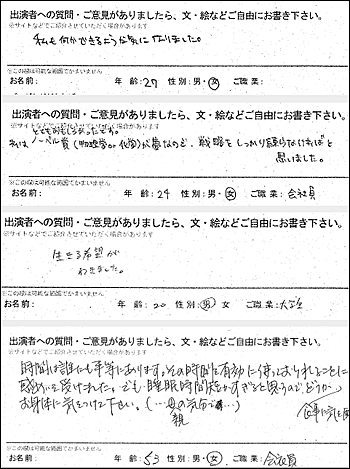 出演者への質問・ご意見がありましたら、文・絵などご自由にお書き下さい。
※サイトなどでご紹介させていただく場合があります
私も何かできるような気になりました。
※この欄は可能な範囲でかまいません
お名前: 年 齢: 27 性別: 男・女 ご職業:
出演者への質問・ご意見がありましたら、文・絵などご自由にお書き下さい。
※サイトなどでご紹介させていただく場合があります
とてもおもしろかったです。
私はノーベル賞(物理学or化学)が夢なので、戦略をしっかり練らなければと
思いました。
※この欄は可能な範囲でかまいません
お名前: 年 齢: 24 性別: 男・女 ご職業: 会社員
出演者への質問・ご意見がありましたら、文・絵などご自由にお書き下さい。
※サイトなどでご紹介させていただく場合があります
生きる希望が
わきました。
※この欄は可能な範囲でかまいません
お名前: 年 齢: 20 性別: 男・女 ご職業: 大学生
出演者への質問・ご意見がありましたら、文・絵などご自由にお書き下さい。
※サイトなどでご紹介させていただく場合があります
時間は誰にも平等にあります。その時間を有効に使っておられることに
感銘を受けました。でも睡眠時間短かすぎると思うのでどうか
お身体に気をつけて下さい。(…母の気分で…)
親
※この欄は可能な範囲でかまいません
お名前: 年 齢: 53 性別: 男・女 ご職業: 会社員